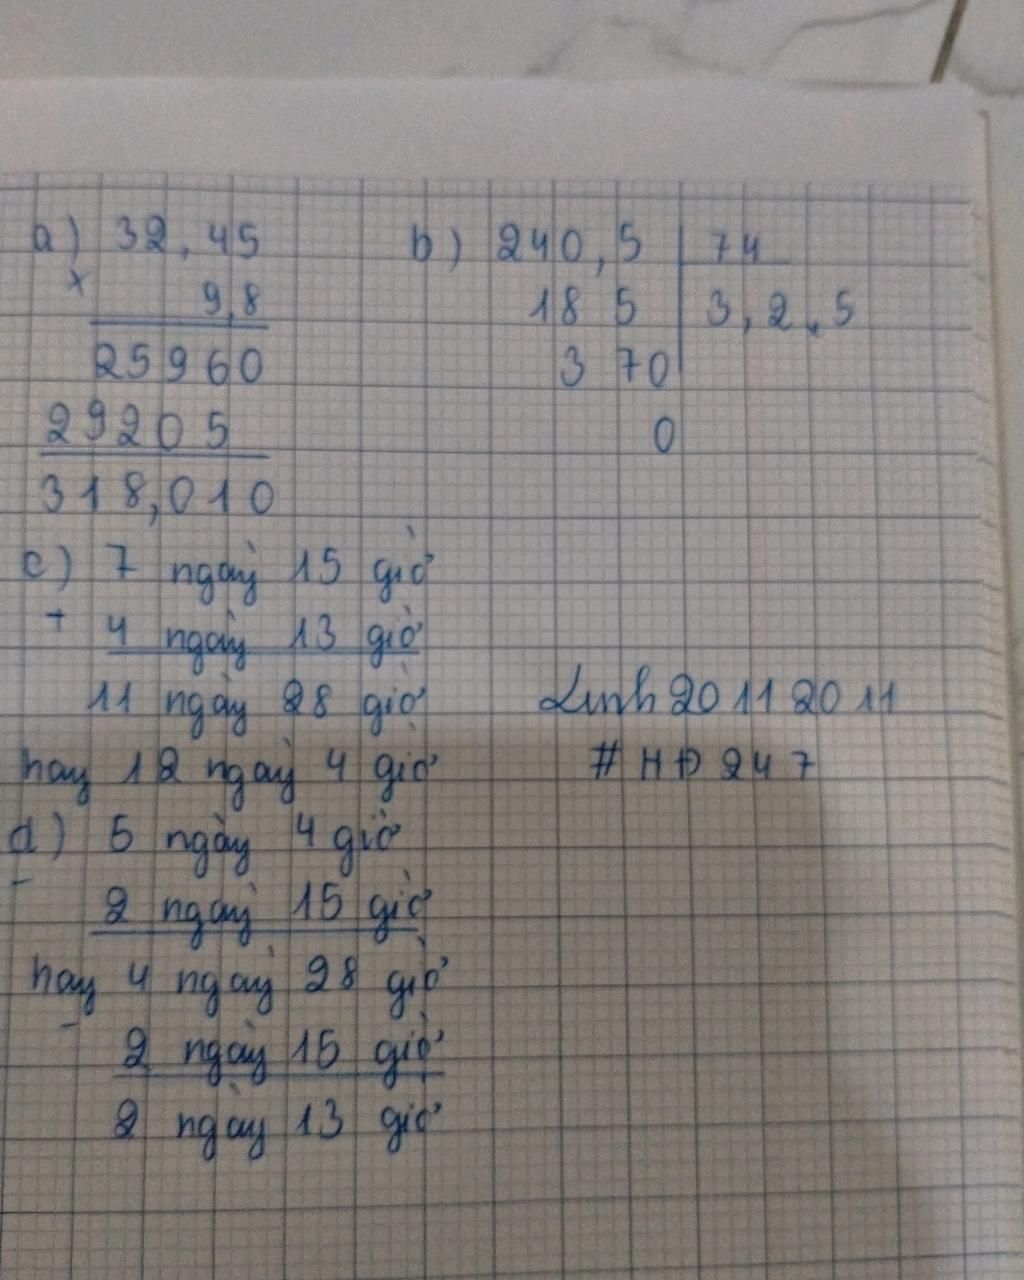 a) 32,45 b) 240,5 | 74
x 9,8 185 | 3,2,5
25960 3 70
29205 0
318,010
c) 7 ngày 15 giờ
+ 4 ngày 13 giờ
11 ngày 28 giờ Linh20112011
hay 12 ngày 4 giờ #HĐ247
d) 5 ngày 4 giờ
- 2 ngày 15 giờ
hay 4 ngày 28 giờ
- 2 ngày 15 giờ
2 ngày 13 giờ